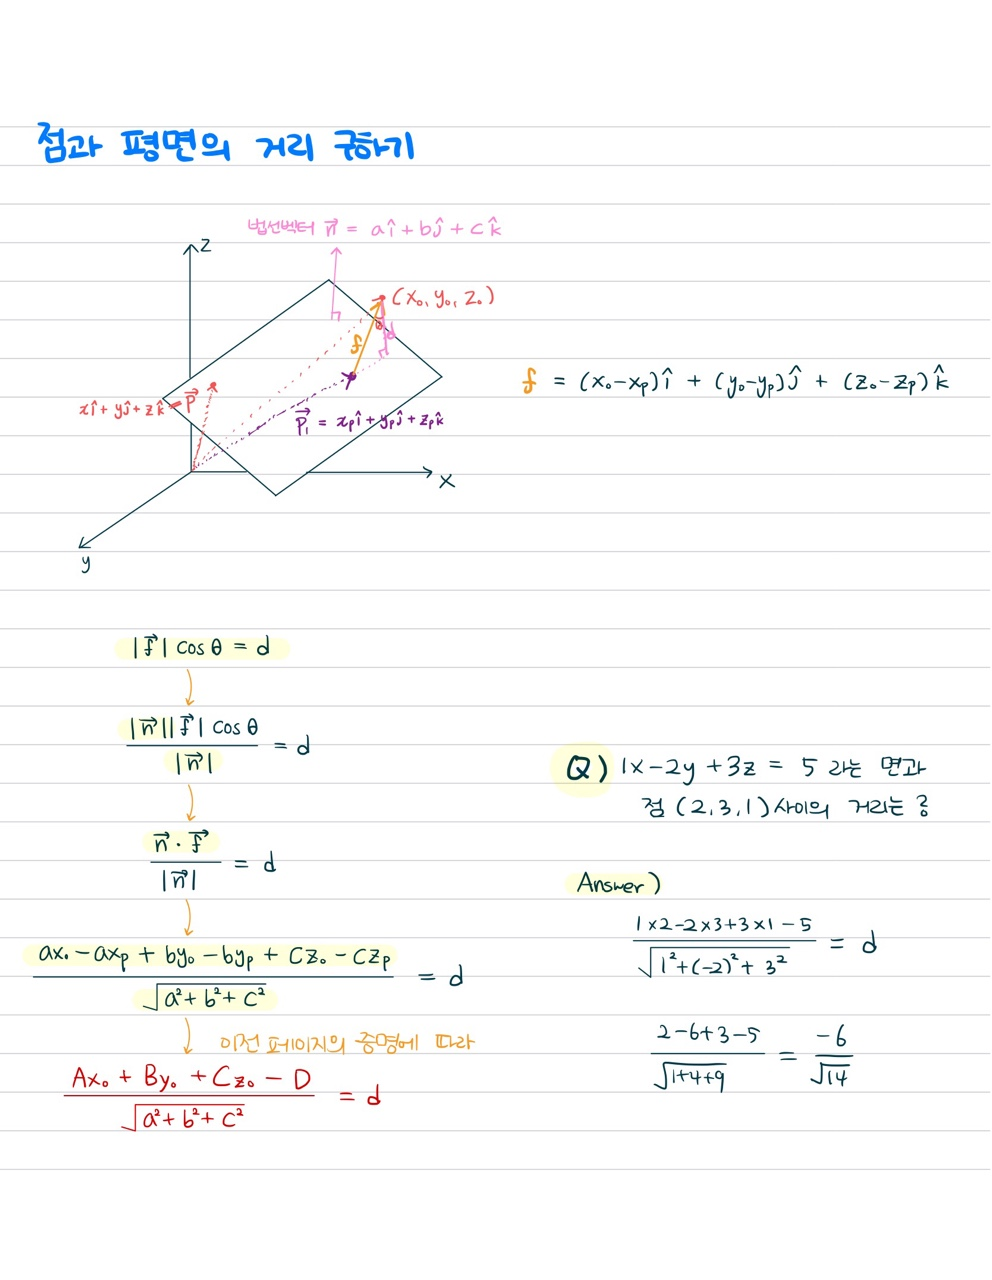 점과 평면의 거리 구하기
법선벡터 n⃗ = aî + bĵ + ck̂
z
(x₀, y₀, z₀)
θ
d
f
f = (x₀-xₚ)î + (y₀-yₚ)ĵ + (z₀-zₚ)k̂
xî + yĵ + zk̂ = P⃗
P⃗₁ = xₚî + yₚĵ + zₚk̂
x
y
|f⃗| cos θ = d
|n⃗||f⃗| cos θ / |n⃗| = d
n⃗ · f⃗ / |n⃗| = d
ax₀ - axₚ + by₀ - byₚ + cz₀ - czₚ / √(a² + b² + c²) = d
이전 페이지의 증명에 따라
Ax₀ + By₀ + Cz₀ - D / √(a² + b² + c²) = d
Q) 1x - 2y + 3z = 5 라는 면과
점 (2, 3, 1) 사이의 거리는?
Answer)
1×2 - 2×3 + 3×1 - 5 / √(1² + (-2)² + 3²) = d
2 - 6 + 3 - 5 / √(1+4+9) = -6 / √14